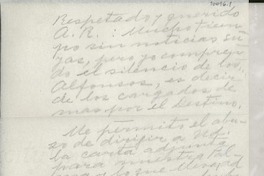 Respetado y querido
A. R.: Mucho tiem-
po sin noticias su-
yas, pero yo compren-
do el silencio de los
Alfonsos, es decir
de los cargados de
mas por el Destino.
Me permito el abu-
so de dirigir a Ud.
la carta adjunta
para nuestro